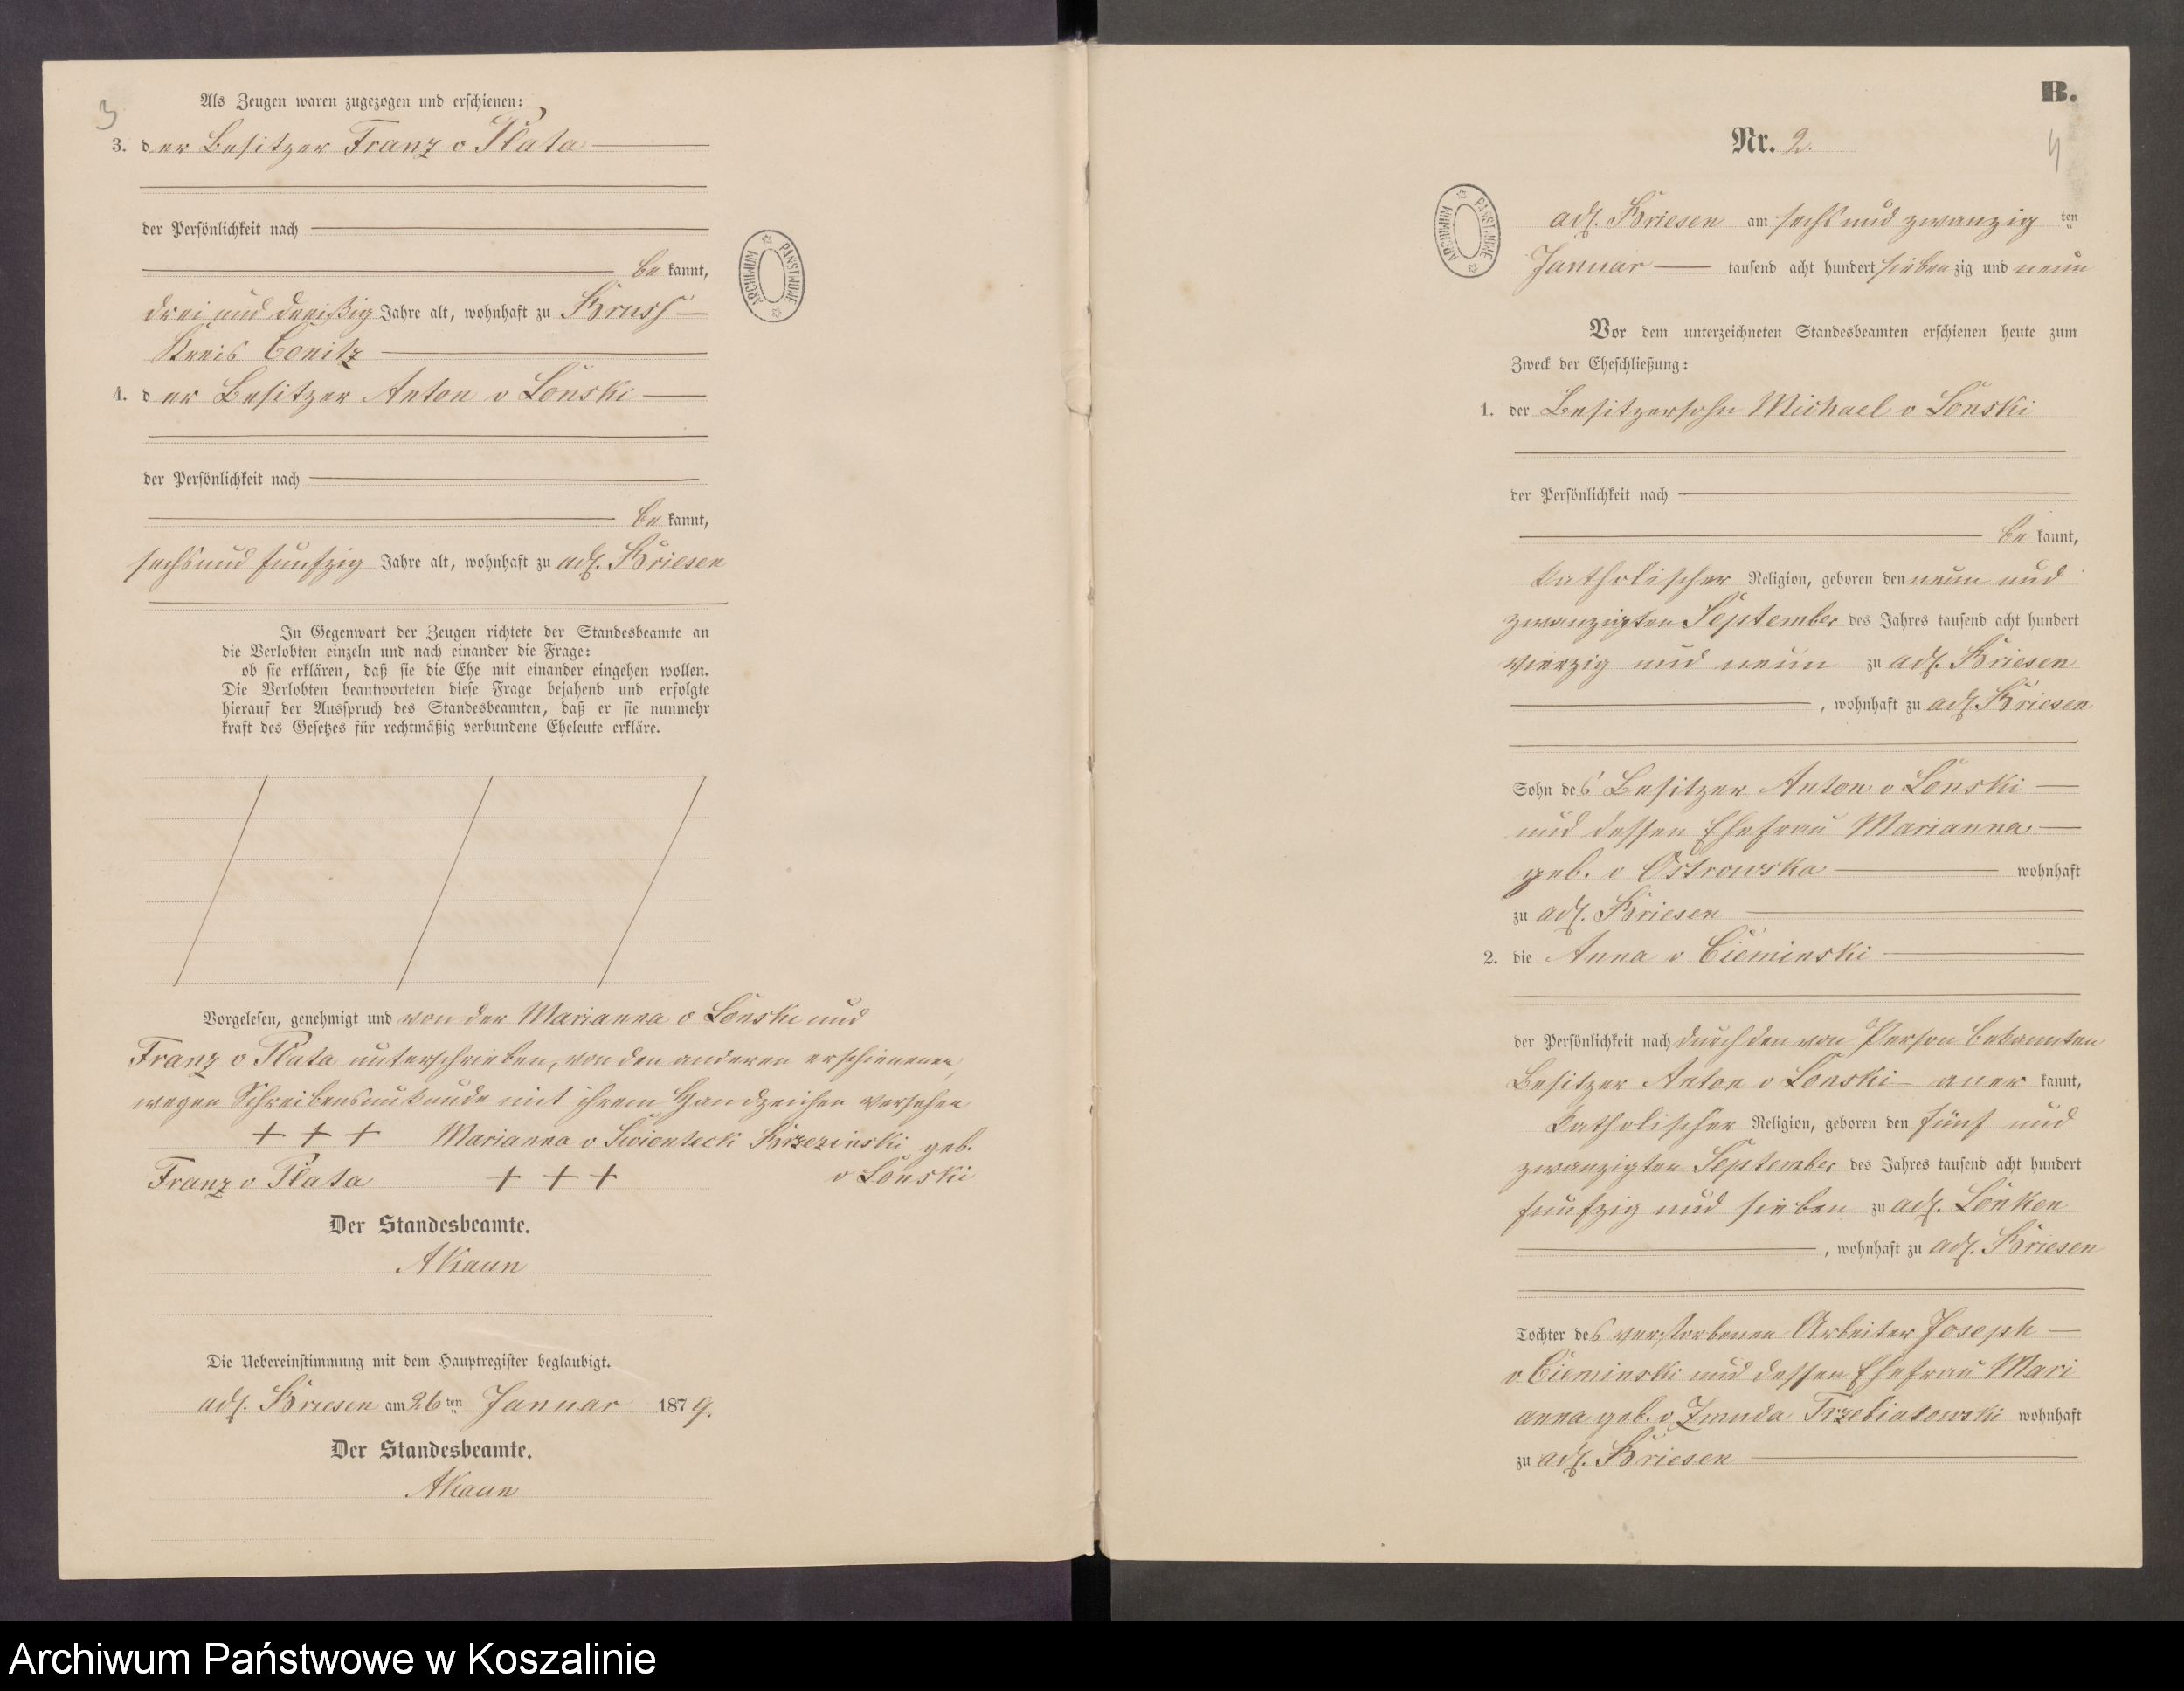 3
Als Zeugen waren zugezogen und erschienen:
3. der Besitzer Franz v Plata
der Persönlichkeit nach
bekannt,
drei und dreißig Jahre alt, wohnhaft zu Bruss
Kreis Conitz
4. der Besitzer Anton v Lonski
der Persönlichkeit nach
bekannt,
sechsund funfzig Jahre alt, wohnhaft zu adl. Briesen
ARCHIWUM PAŃSTWOWE
In Gegenwart der Zeugen richtete der Standesbeamte an
die Verlobten einzeln und nach einander die Frage:
ob sie erklären, daß sie die Ehe mit einander eingehen wollen.
Die Verlobten beantworteten diese Frage bejahend und erfolgte
hierauf der Ausspruch des Standesbeamten, daß er sie nunmehr
kraft des Gesetzes für rechtmäßig verbundene Eheleute erkläre.
Vorgelesen, genehmigt und von der Marianna v Lonski und
Franz v Plata unterschrieben, von den anderen erschienenen
wegen Schreibensunkunde mit ihrem Handzeichen versehen
+ + + Marianna v Swienteck Brzezinski geb.
Franz v Plata + + + v Lonski
Der Standesbeamte.
Die Uebereinstimmung mit dem Hauptregister beglaubigt.
adl. Briesen am 26ten Januar 1879.
Der Standesbeamte.
B.
Nr. 2.
4
ARCHIWUM PAŃSTWOWE
adl. Briesen am sechs und zwanzigten
Januar tausend acht hundert siebenzig und neun
Vor dem unterzeichneten Standesbeamten erschienen heute zum
Zweck der Eheschließung:
1. der Besitzersohn Michael v Lonski
der Persönlichkeit nach
bekannt,
katholischer Religion, geboren den neun und
zwanzigten September des Jahres tausend acht hundert
vierzig und neun zu adl. Briesen
, wohnhaft zu adl. Briesen
Sohn des Besitzer Anton v Lonski
und dessen Ehefrau Marianna
geb. v Ostrowska wohnhaft
zu adl. Briesen
2. die Anna v Cieminski
der Persönlichkeit nach durch den von Person bekannten
Besitzer Anton v Lonski anerkannt,
katholischer Religion, geboren den fünf und
zwanzigten September des Jahres tausend acht hundert
funfzig und sieben zu adl. Lonken
, wohnhaft zu adl. Briesen
Tochter des verstorbenen Arbeiter Joseph
v Cieminski und dessen Ehefrau Mari
anna geb. v Zmuda Trzebiatowski wohnhaft
zu adl. Briesen
Archiwum Państwowe w Koszalinie